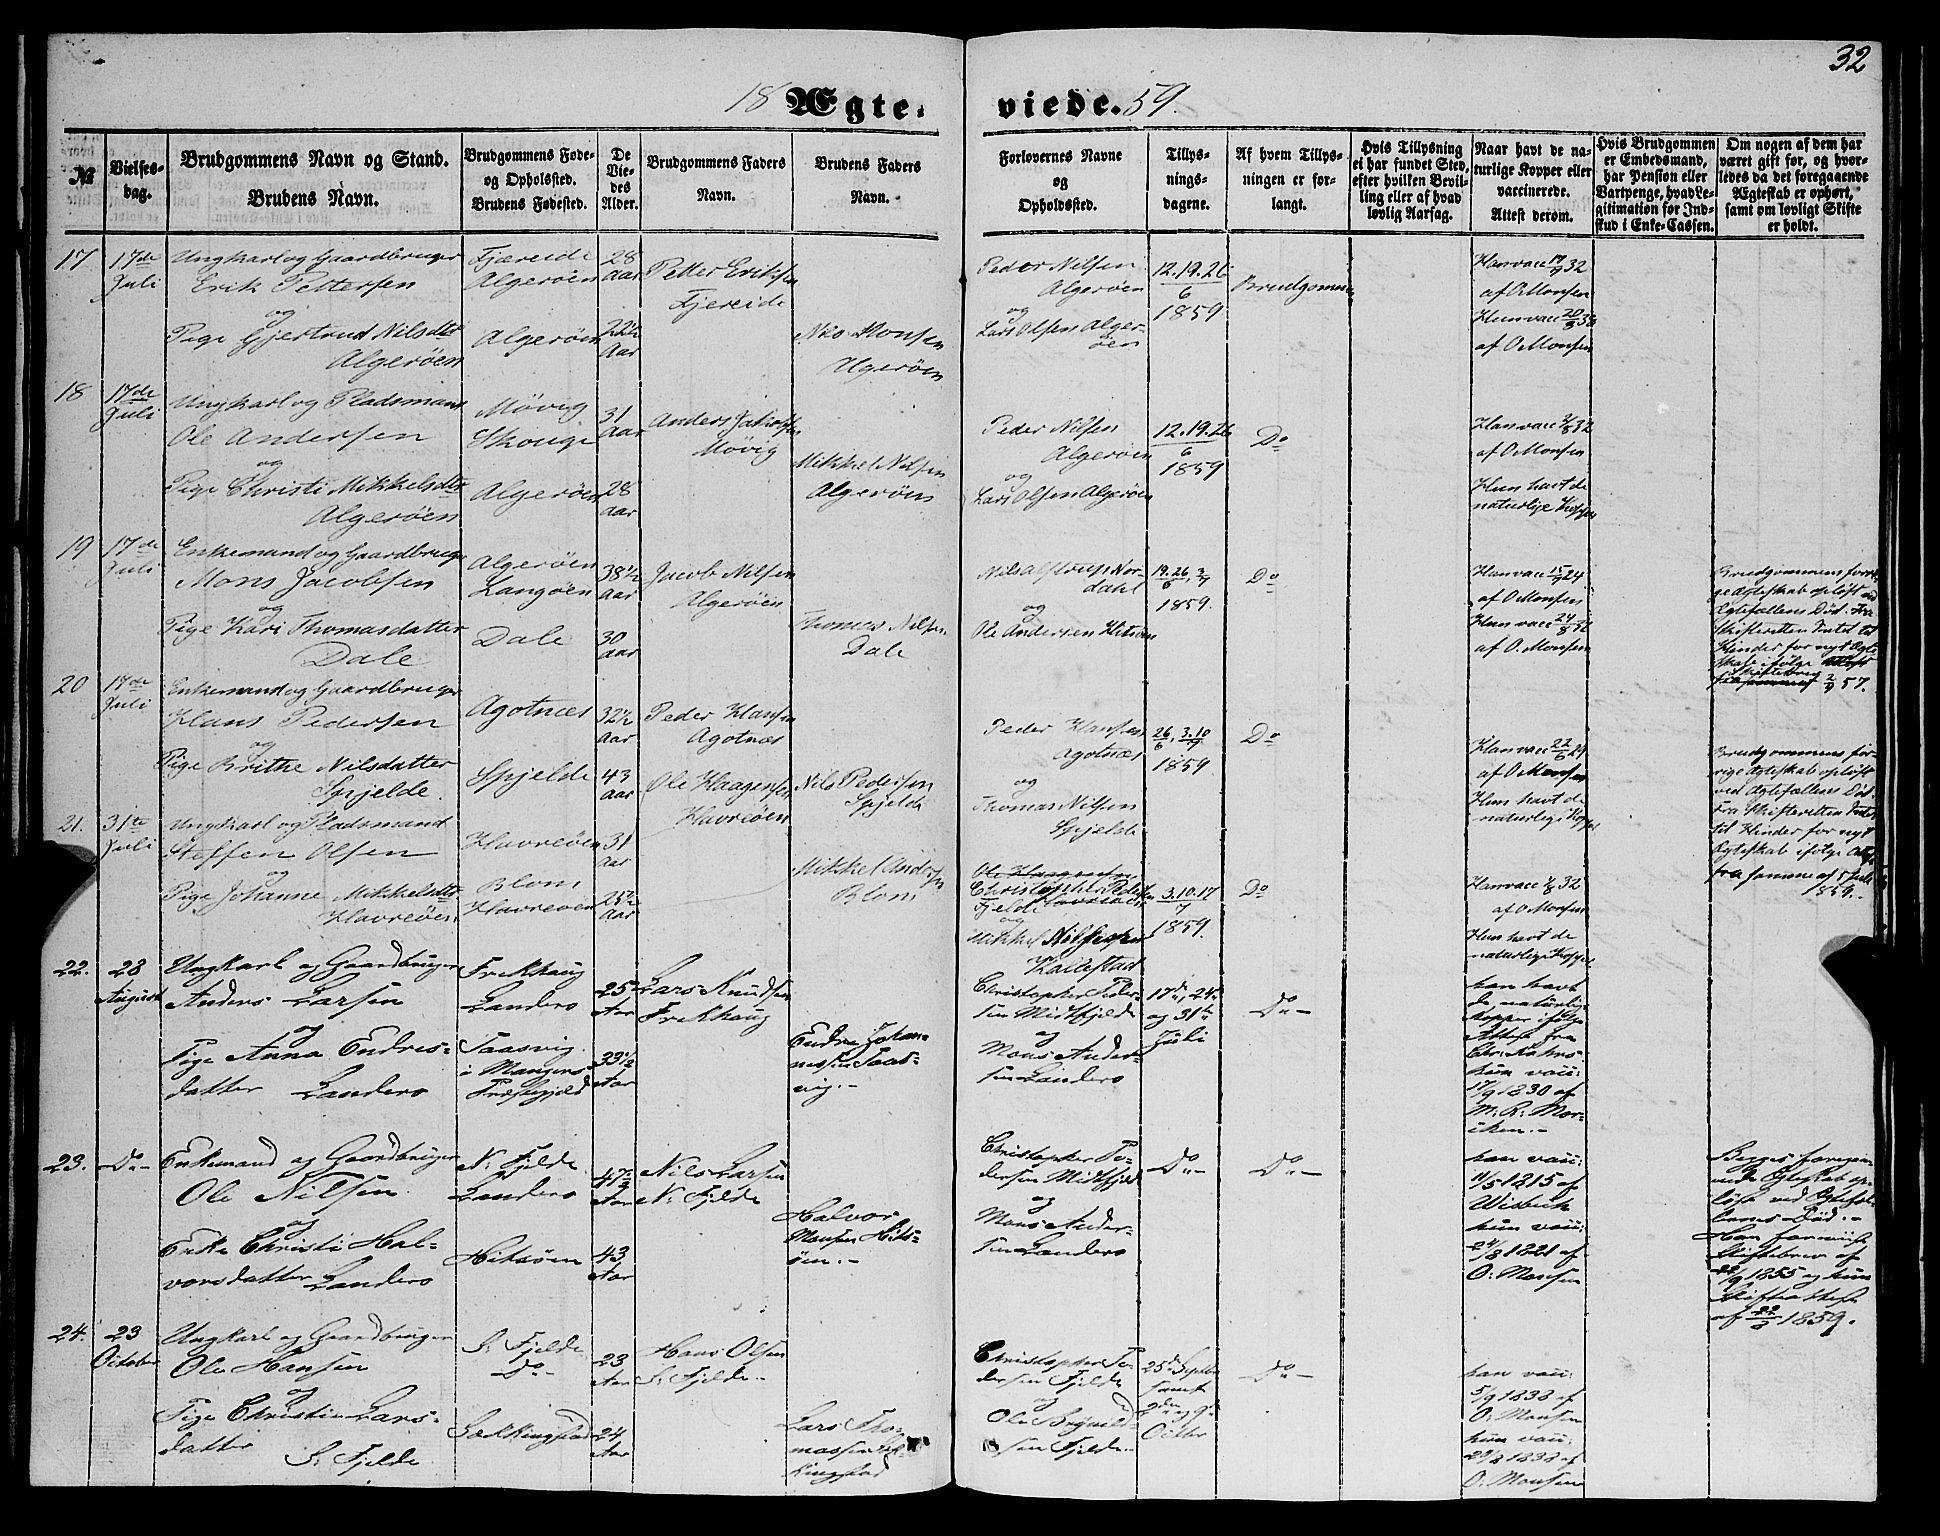 32
18 Ægte-viede. 59.
№
Vielses-
dag.
Brudgommens Navn og Stand.
Brudens Navn.
Brudgommens Føde-
og Opholssted.
Brudens Fødested.
De
Vie-
des
Alder.
Brudgommens Faders
Navn.
Brudens Faders
Navn.
Forlovernes Navne
og
Opholdssted.
Tillys-
nings-
dagene.
Af hvem Tillys-
ningen er for-
langt.
Hvis Tillysning
ei har fundet Sted,
efter hvilken Bevil-
ling eller af hvad
lovlig Aarsag.
Naar havt de na-
turlige Kopper eller
vaccinerede.
Attest derom.
Hvis Brudgommen
er Embedsmand,
har Pension eller
Vartpenge, hvad Le-
gitimation for Ind-
skud i Enke-Cassen.
Om nogen af dem har
været gift før, og hvor-
ledes da det foregaaende
Ægteskab er ophørt,
samt om lovligt Skifte
er holdt.
17
17de
Juli
Ungkarl og Gaardbruger
Erik Pettersen
og
Pige Gjertrud Nilsdtr
Algerøen
Fjæreide
Algerøen
Algerøen
28
Aar
22½
Aar
Petter Eriksen
Fjereide
Nils Monsen
Algerøen
Peder Nilsen
Algerøen
og
Lars Olsen Alger-
øen
12.19.26
6
1859
Brudgommen
Han vacc 32
af O Monsen
Hun vacc
af O Monsen
18
17de
Juli
Ungkarl og Pladsmand
Ole Andersen
og
Pige Christi Mikkelsdtr
Algerøen
Møvig
Skouge
Algerøen
31
Aar
28
Aar
Anders Jakobsen
Møvig
Mikkel Nilsen
Algerøen
Peder Nilsen
Algerøen
og
Lars Olsen Algerøen
12.19.26
6
1859
Do
Han vacc 32
af O Monsen
Hun havt de
naturlige Kopper
19
17de
Juli
Enkemand og Gaardbruger
Mons Jacobsen
og
Pige Kari Thomasdatter
Dale
Algerøen
Langøen
Dale
38½
Aar
30
Aar
Jacob Nilsen
Algerøen
Thomas Nilsen
Dale
Nils Alstrup Nor-
dahl
og
Ole Andersen
19.26. 3
6 7
1859.
Do
Han vacc 15/9 24
af O Monsen
Hun vacc
af O. Monsen
Brudgommens forri-
ge Ægteskab opløst ved
Ægtefællens Død. Fra
Skifteretten Intet til
Hinder for nyt Ægte-
skab ifølge
57.
20
17de
Juli
Enkemand og Gaardbruger
Hans Pedersen
og
Pige Brithe Nilsdatter
Spjelde.
Agotnæs
Spjelde
32½
Aar
43
Aar
Peder Hansen
Agotnæs
Nils Pedersen
Spjelde
Peder Hansen
Agotnæs
og
Thomas Nilsen
Spjelde
26. 3.10
6 7
1859
Do
Han vacc
af O Monsen
Hun havt de
naturlige Kopper
Brudgommens for-
rige Ægteskab opløst
ved Ægtefællens Død.
Fra Skifteretten Intet
til Hinder for nyt
Ægteskab ifølge
fra samme af 5 Juli
1859.
21.
31te
Juli
Ungkarl og Pladsmand
Steffen Olsen
og
Pige Johanne Mikkelsdtr
Havreøen
Havreøen
Blom
Havreøen
31
Aar
25½
Aar
Ole Haagensen
Havreøen
Mikkel Andersen
Blom
Ole Haagensen
Christopher Pedersen
Fjelde
og
Mikkel
Kallestad
3.10.17
7
1859.
Do
Han vacc 32
af O Monsen
Hun havt de
naturlige Kopper
22.
28
August
Ungkarl og Gaardbruger
Anders Larsen
og
Pige Anna Endres-
datter Landero
Frekhaug
Landero
Taasvig
i Mangers
Præstegjeld
25
Aar
33½
Aar
Lars Knudsen
Frekhaug
Endre Johan-
nessen Taas-
vig.-
Christopher Peder-
sen Midtfjelde
og
Mons Ander-
sen Landero
17de, 24de
og 31te
Juli
Do-
han havt
de naturlige
Kopper ifølge
Attest fra
hun vacc:
17/9 1830 af
M. R. Mor-
23.
Do-
Enkemand og Gaardbruger
Ole Nilsen
og
Enke Christi Hal-
vorsdatter Landero
N. Fjelde
Landero
Hitsøen
47½
Aar
43
Aar
Nils Larsen
N. Fjelde
Halvor
Monsen Hits-
øen.-
Christopher Pe-
dersen Midtfjeld
og
Mons Ander-
sen Landero
Do-
Do-
han vacc:
11/5 1815 af
hun vacc:
24/8 1821 af
O. Monsen
Begges foregaa-
ende Ægteskab op-
løst ved Ægtefæl-
lernes Død.-
Han foreviist
Skiftebrev af
1855 og hun
Skifteattest
af 1859.
24.
23
October
Ungkarl og Gaardbruger
Ole Hansen
og
Pige Christi Lars-
datter
S. Fjelde
S. Fjelde
Do-
23
Aar
24
Aar
Hans Olsen
S. Fjelde-
Lars Tho-
massen
Christopher Pe-
dersen Fjelde
og
Ole Brynild-
sen Fjelde-
25de Septbr
samt
2den og 9de
Octbr
Do-
han vacc:
5/9 1838 af
O. Monsen
hun vacc:
1838 af
O. Monsen